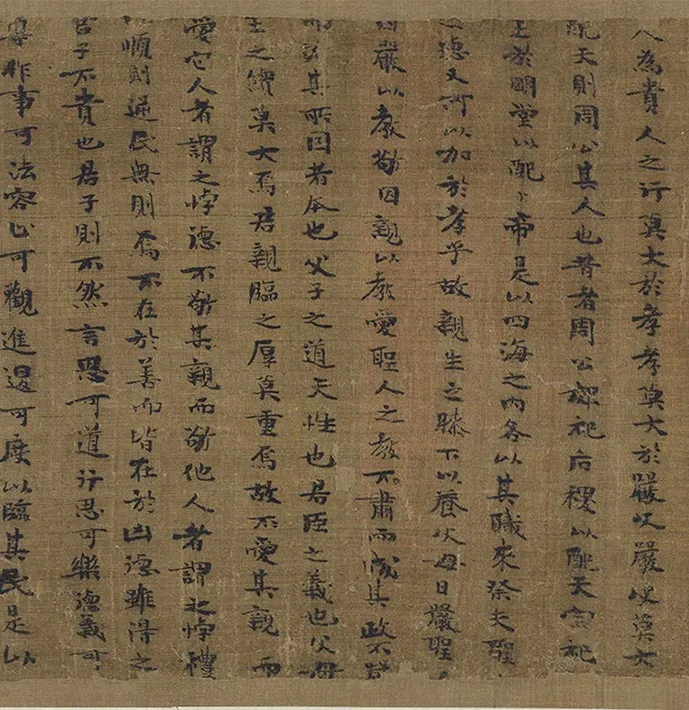 人為貴人之行莫大於孝孝莫大於嚴父嚴父莫大
配天則周公其人也昔者周公郊祀后稷以配天宗祀
王於明堂以配上帝是以四海之內各以其職來祭夫聖
德又何以加於孝乎故親生之膝下以養父母日嚴聖人
因嚴以教敬因親以教愛聖人之教不肅而成其政不嚴
而治其所因者本也父子之道天性也君臣之義也父母
生之續莫大焉君親臨之厚莫重焉故不愛其親而
愛它人者謂之悖德不敬其親而敬他人者謂之悖禮
以順則逆民無則焉不在於善而皆在於凶德雖得之
君子不貴也君子則不然言思可道行思可樂德義可
尊作事可法容止可觀進退可度以臨其民是以